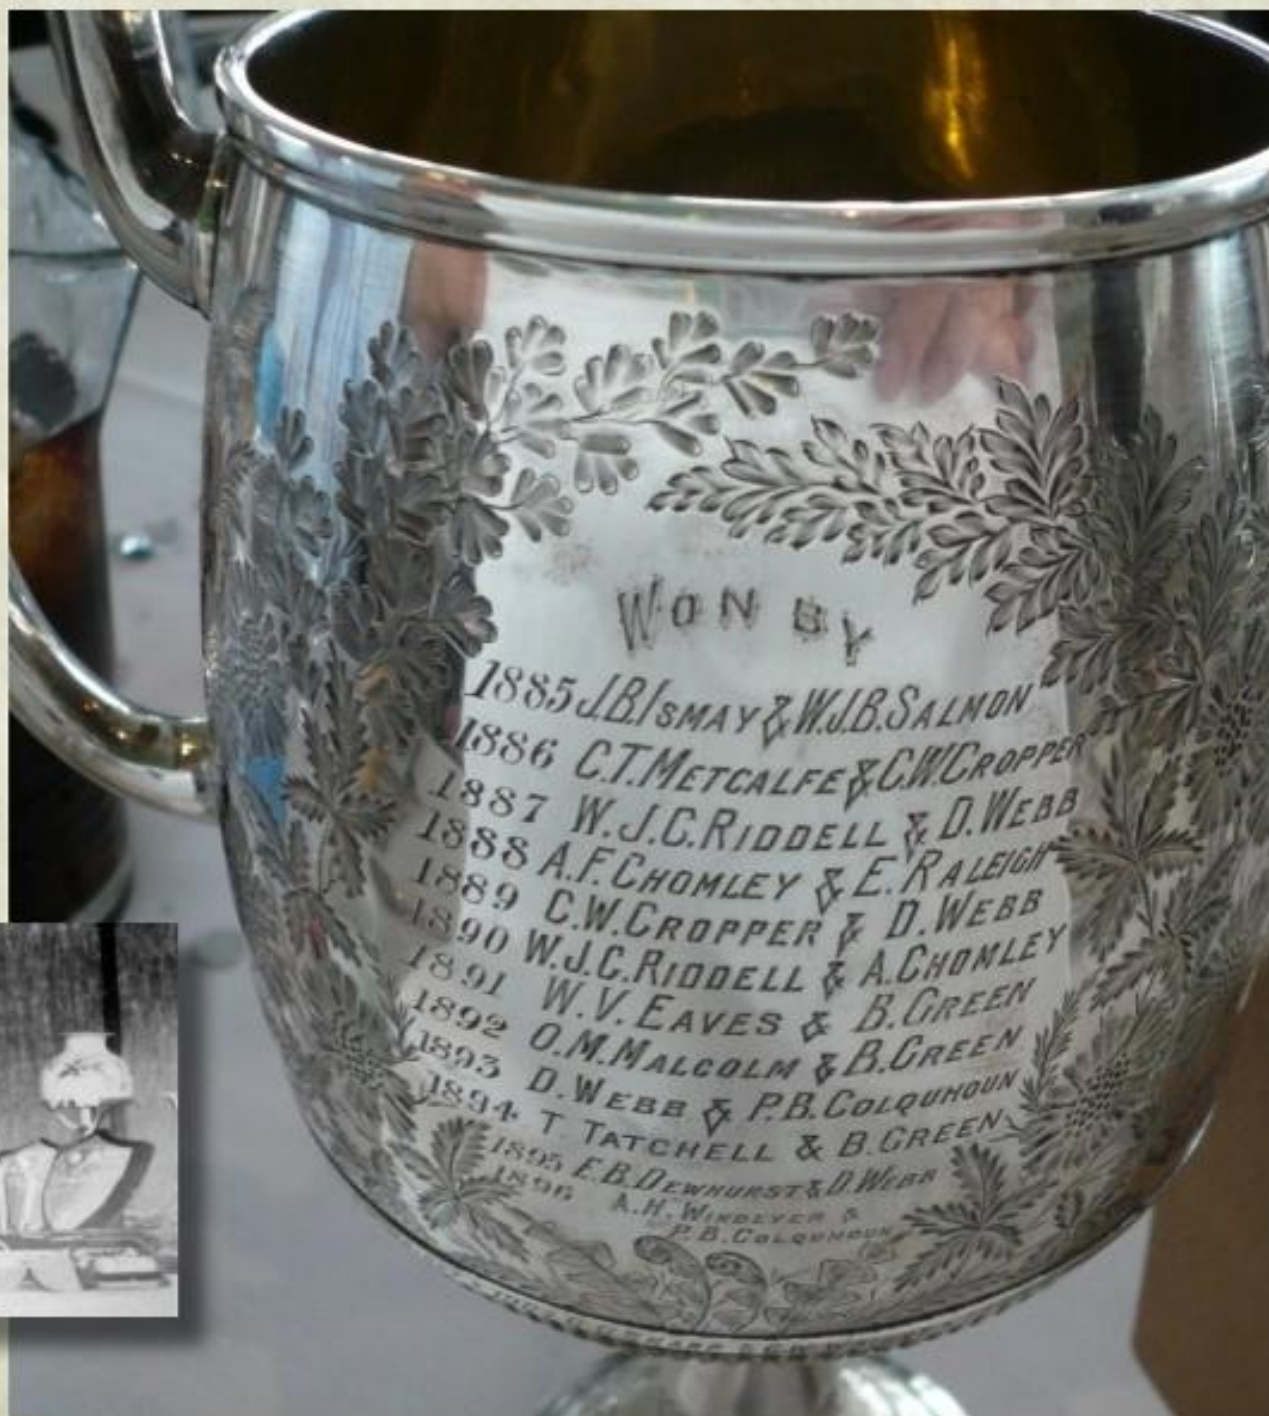 WON BY
1885 J.B.ISMAY & W.J.B.SALMON
1886 C.T.METCALFE & C.W.CROPPER
1887 W.J.C.RIDDELL & D.WEBB
1888 A.F.CHOMLEY & E.RALEIGH
1889 C.W.CROPPER & D.WEBB
1890 W.J.C.RIDDELL & A.CHOMLEY
1891 W.V.EAVES & B.GREEN
1892 O.M.MALCOLM & B.GREEN
1893 D.WEBB & P.B.COLQUHOUN
1894 T. TATCHELL & B.GREEN
1895 E.B.DEWHURST & D.WEBB
1896 A.H.WINDEYER &
P.B.COLQUHOUN